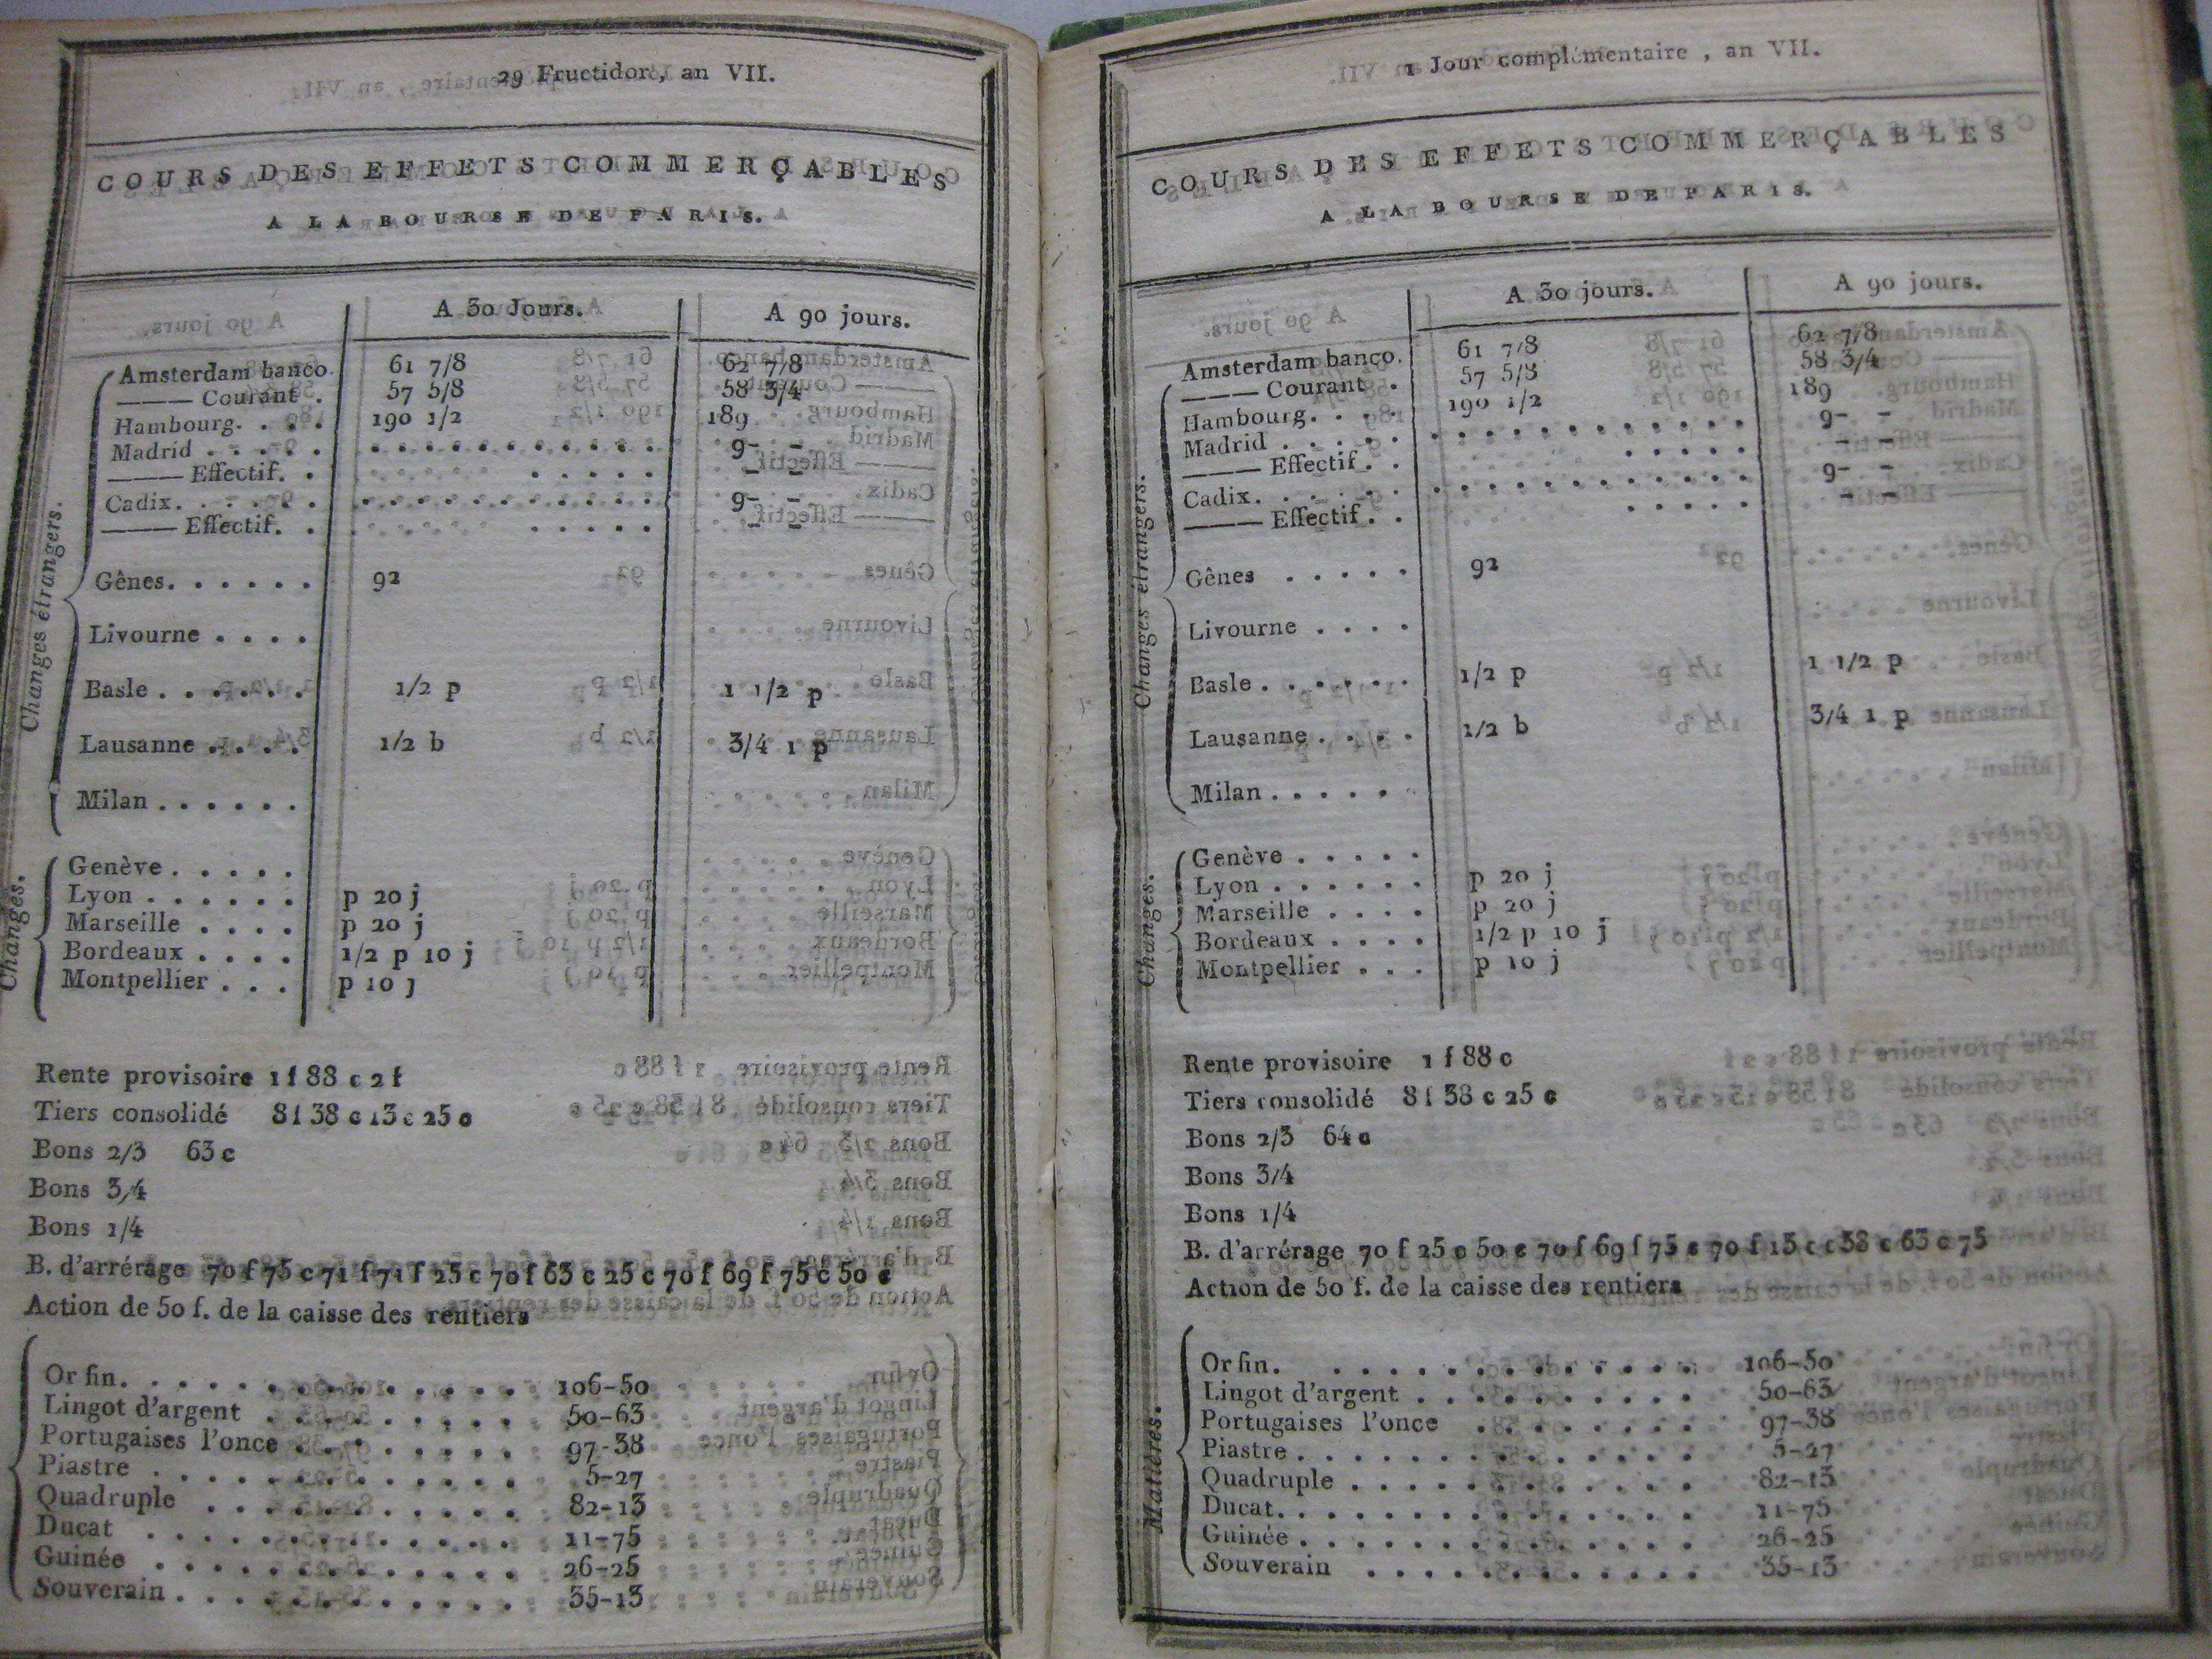 29 Fructidor, an VII.
COURS DES EFFETS COMMERÇABLES
A LA BOURSE DE PARIS.
A 30 Jours. A 90 jours.
Changes étrangers.
Amsterdam banco. 61 7/8 62 7/8
——— Courant . 57 5/8 58 3/4
Hambourg. . . . 190 1/2 189
Madrid . . . . . . . . . . . . . . . . 9- -
——— Effectif. . . . . . . - -
Cadix. . . . . . . . . . . . . . . . . . 9- -
——— Effectif. . . . . . . - -
Gênes. . . . . . 92
Livourne . . . .
Basle . . . . . . 1/2 p 1 1/2 p
Lausanne . . . . 1/2 b 3/4 1 p
Milan . . . . . .
Changes.
Genève . . . . .
Lyon . . . . . . p 20 j
Marseille . . . . p 20 j
Bordeaux . . . . 1/2 p 10 j
Montpellier . . . p 10 j
Rente provisoire 1 f 88 c 2 f
Tiers consolidé 8 f 38 c 13 c 25 c
Bons 2/3 63 c
Bons 3/4
Bons 1/4
B. d'arrérage 70 f 75 c 71 f 71 f 25 c 70 f 63 c 25 c 70 f 69 f 75 c 50 c
Action de 50 f. de la caisse des rentiers
Or fin. . . . . . . . . . . . . . 106-50
Lingot d'argent . . . . . . . . . 50-63
Portugaises l'once . . . . . . . . 97-38
Piastre . . . . . . . . . . . . . 5-27
Quadruple . . . . . . . . . . . 82-13
Ducat . . . . . . . . . . . . . 11-75
Guinée . . . . . . . . . . . . . 26-25
Souverain . . . . . . . . . . . . 35-13
1 Jour complémentaire, an VII.
COURS DES EFFETS COMMERÇABLES
A LA BOURSE DE PARIS.
A 30 jours. A 90 jours.
Changes étrangers.
Amsterdam banco. 61 7/8 62 7/8
——— Courant . 57 5/8 58 3/4
Hambourg. . . . 190 1/2 189
Madrid . . . . . . . . . . . . . . . . . 9- -
——— Effectif. . . . . . . - -
Cadix. . . . . . . . . . . . . . . . . . 9- -
——— Effectif. . . . . . . - -
Gênes . . . . . 92
Livourne . . . .
Basle . . . . . . 1/2 p 1 1/2 p
Lausanne . . . . 1/2 b 3/4 1 p
Milan . . . . . .
Changes.
Genève . . . . .
Lyon . . . . . . p 20 j
Marseille . . . . p 20 j
Bordeaux . . . . 1/2 p 10 j
Montpellier . . . p 10 j
Rente provisoire 1 f 88 c
Tiers consolidé 8 f 38 c 25 c
Bons 2/3 64 c
Bons 3/4
Bons 1/4
B. d'arrérage 70 f 25 c 50 c 70 f 69 f 75 c 70 f 13 c c 38 c 63 c 75
Action de 50 f. de la caisse des rentiers
Matières.
Or fin. . . . . . . . . . . . . 106-50
Lingot d'argent . . . . . . . . . . 50-63
Portugaises l'once . . . . . . . . 97-38
Piastre . . . . . . . . . . . . . . 5-27
Quadruple . . . . . . . . . . . . 82-13
Ducat. . . . . . . . . . . . . . . 11-75
Guinée . . . . . . . . . . . . . . 26-25
Souverain . . . . . . . . . . . . 35-13